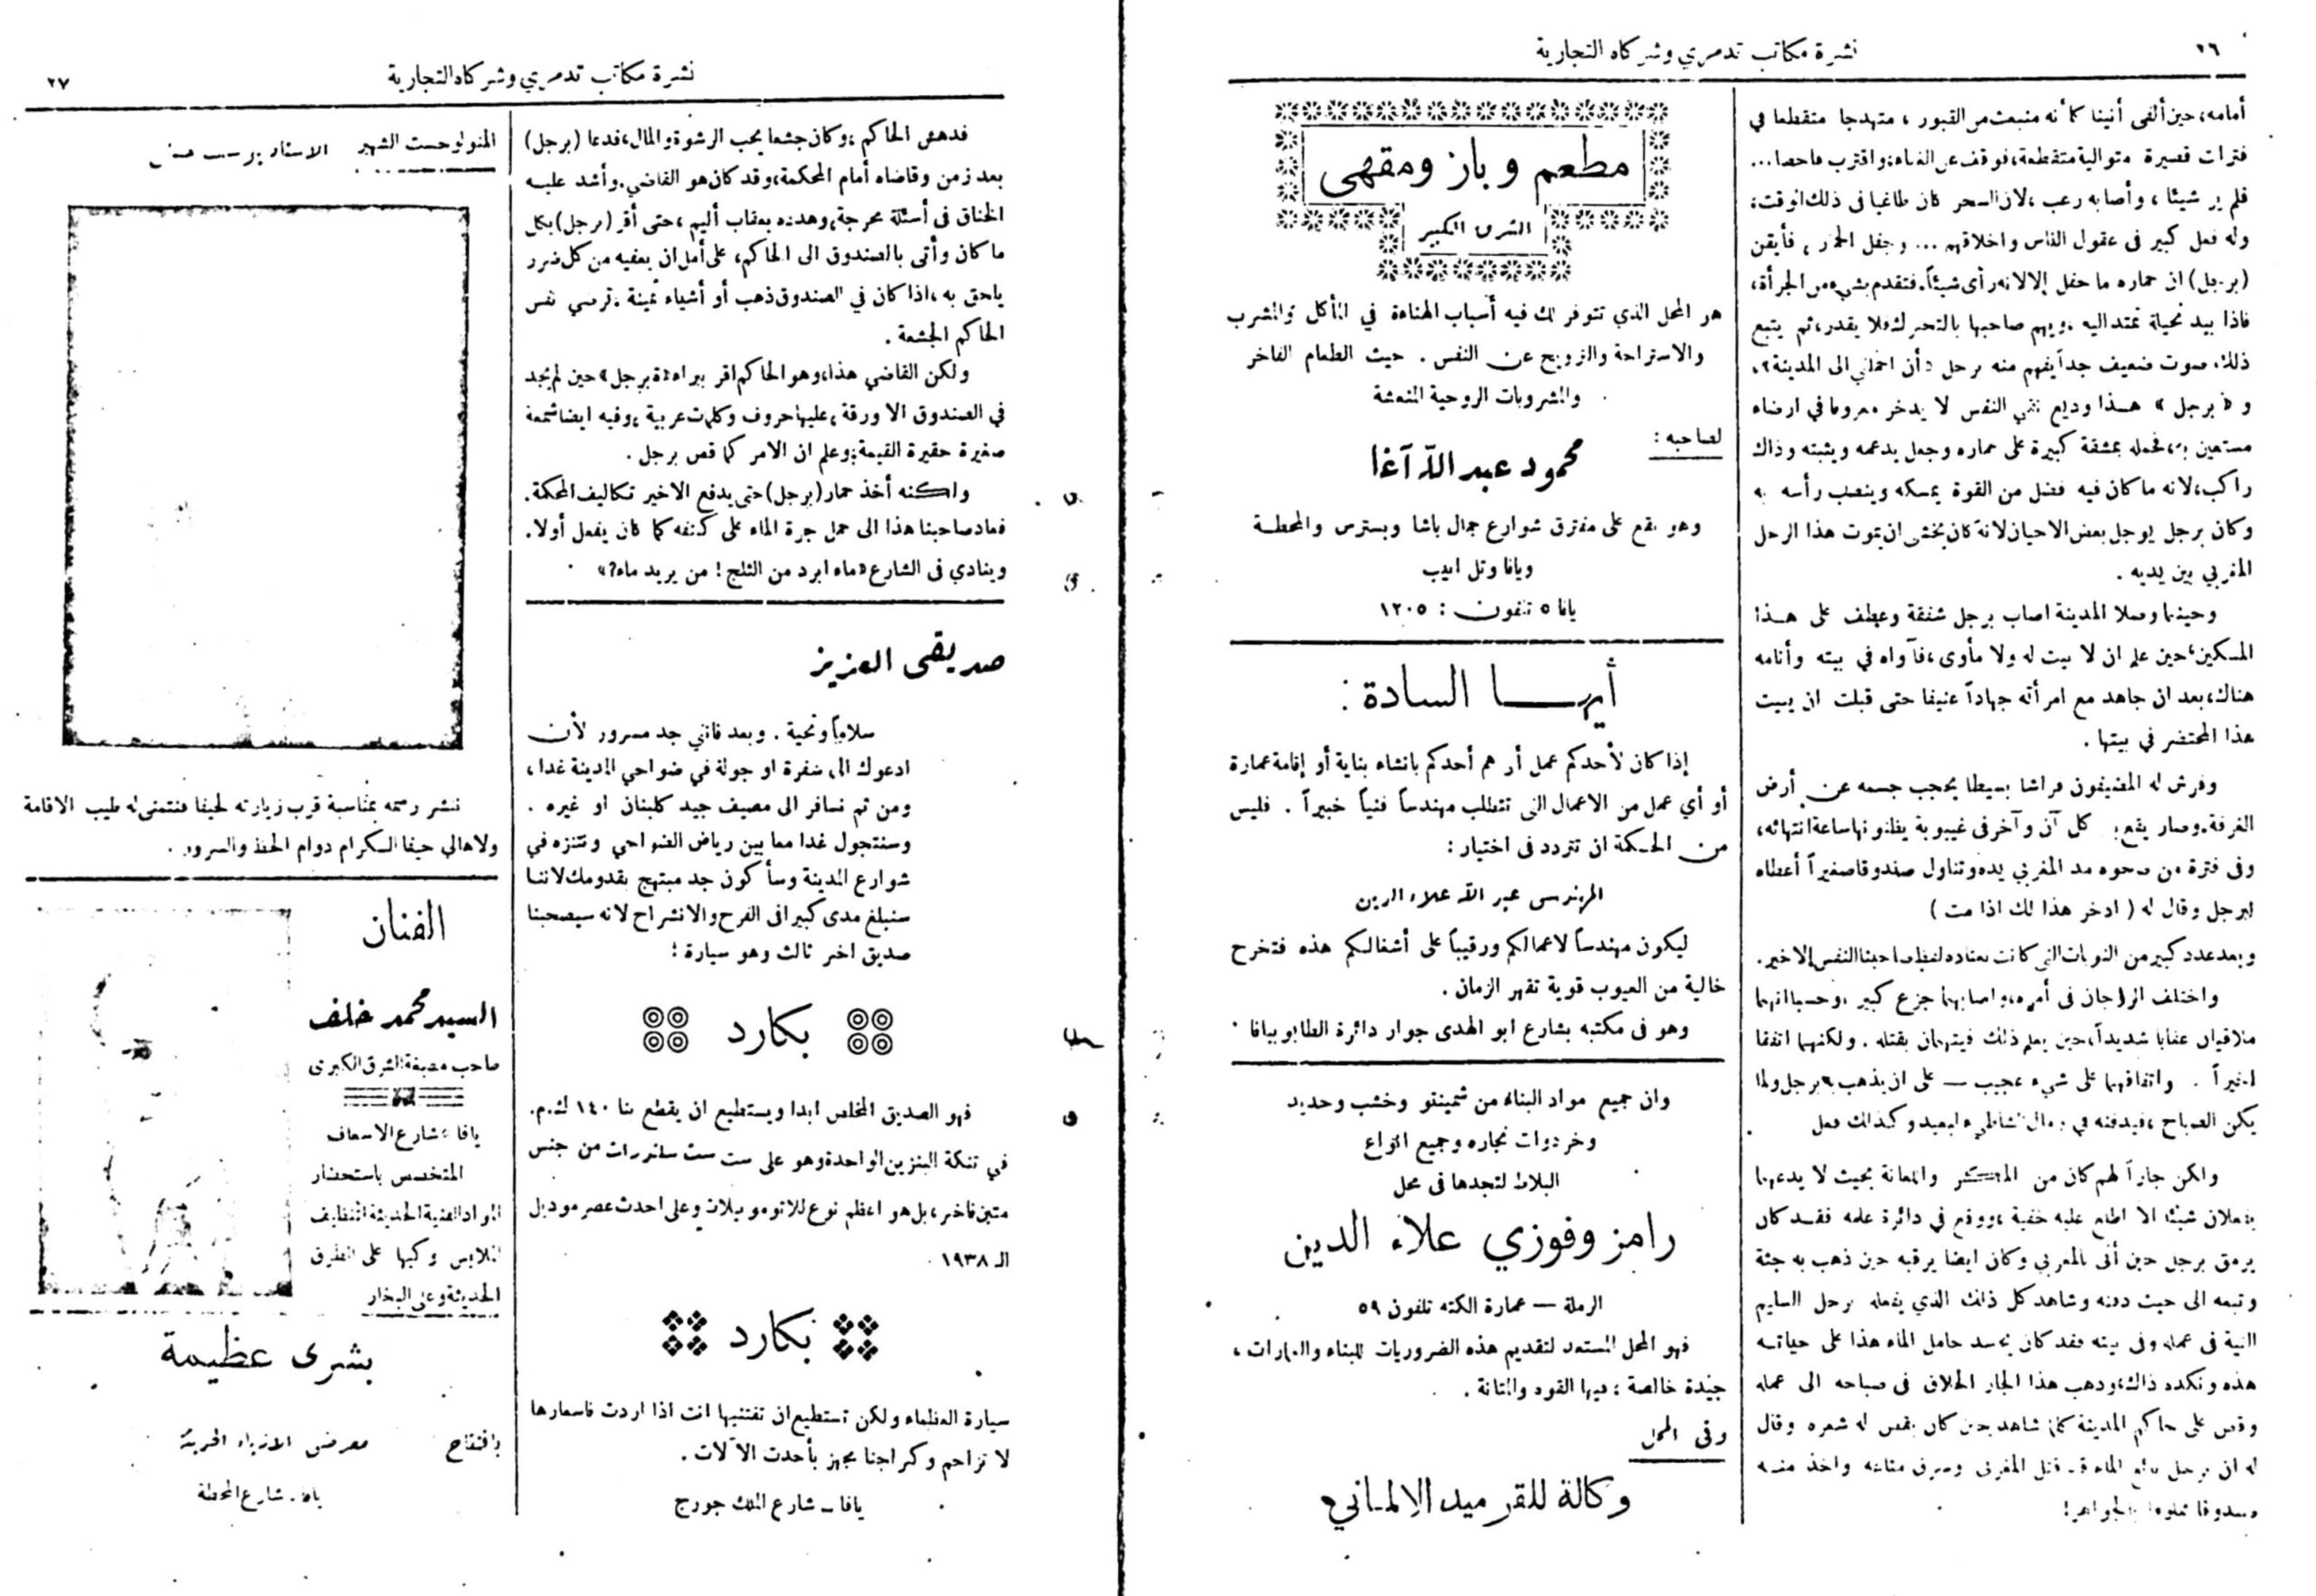 ٢٦
نشرة مكاتب تدمري وشركاه التجارية
أمامه، حين ألفى أنينا كأنه منبعث من القبور ، متهدجا متقطعا في
فترات قصيرة متوالية متقطعة، فوقف عن الغناء، واقترب فاحصا...
فلم ير شيئا ، وأصابه رعب ، لان السحر كان طاغيا فى ذلك الوقت،
وله فعل كبير فى عقول الناس واخلاقهم ... وجفل الحمار ، فأيقن
(برجل) ان حماره ما جفل إلا لانه رأى شيئاً. فتقدم بشيء من الجرأة،
فاذا بيد نحيلة تمتد اليه ، ويهم صاحبها بالتحرك فلا يقدر، ثم يتبع
ذلك صوت ضعيف جداً يفهم منه برجل «أن احملني الى المدينة»،
و «برجل» هذا وديع نقي النفس لا يدخر معروفا في ارضاء
مستعين به، فحمله بمشقة كبيرة على حماره وجعل يدعمه ويثبته وذاك
راكب، لانه ما كان فيه فضل من القوة يمسكه وينصب رأسه به
وكان برجل يوجل بعض الاحيان لانه كان يخشى ان يموت هذا الرجل
المغربي بين يديه .
وحينما وصلا المدينة اصاب برجل شفقة وعطف على هذا
المسكين، حين علم ان لا بيت له ولا مأوى، فآواه في بيته وأنامه
هناك، بعد ان جاهد مع امرأته جهاداً عنيفا حتى قبلت ان يبيت
هذا المحتضر في بيتها .
وفرش له المضيفون فراشا بسيطا يحجب جسمه عن أرض
الغرفة. وصار يقع كل آن وآخر فى غيبوبة يظنونها ساعة انتهائه،
وفى فترة من صحوه مد المغربي يده وتناول صندوقا صغيراً أعطاه
لبرجل وقال له ( ادخر هذا لك اذا مت )
وبعد عدد كبير من النوبات التى كانت تعتاده لفظ صاحبنا النفس الاخير.
واختلف الزوجان في أمره، واصابهما جزع كبير ، وحسبا انهما
ملاقيان عقابا شديداً، حين يعلم ذلك فيتهمان بقتله . ولكنهما اتفقا
اخيراً . واتفاقهما على شيء عجيب — على ان يذهب برجل ولما
يكن الصباح ، فيدفنه في رمال الشاطىء البعيد وكذلك فعل
ولكن جاراً لهم كان من المكر والمعانة بحيث لا يدعهما
يفعلان شيئا الا اطلع عليه خفية ، ووقع في دائرة علمه فقد كان
يرمق برجل حين أتى بالمغربي وكان ايضا يرقبه حين ذهب به جثة
وتبعه الى حيث دفنه وشاهد كل ذلك الذي يفعله برجل السليم
النية فى عمله وفى بيته فقد كان يحسد حامل الماء هذا على حياته
هذه ونكده ذاك، وذهب هذا الجار الحلاق فى صباحه الى عمله
وقص على حاكم المدينة كلما شاهد حين كان يقص له شعره وقال
له ان برجل بائع الماء قد قتل المغربي وسرق متاعه واخذ منه
صندوقا مملوءا بالجواهر!
مطعم وبار ومقهى
الشرق الكبير
هو المحل الذي تتوفر لك فيه أسباب الهناءة في المأكل والمشرب
والاستراحة والترويح عن النفس . حيث الطعام الفاخر
والمشروبات الروحية المنعشة
لصاحبه :
محمود عبد الله آغا
وهو يقع على مفترق شوارع جمال باشا وبسترس والمحطة
ويافا وتل ابيب
يافا ٥ تلفون : ١٢٠٥
أيها السادة :
إذا كان لأحدكم عمل أو هم أحدكم بانشاء بناية أو إقامة عمارة
أو أي عمل من الاعمال التى تتطلب مهندساً فنياً خبيراً . فليس
من الحكمة ان تتردد فى اختيار :
المهندس عبد الله علاء الدين
ليكون مهندساً لاعمالكم ورقيباً على أشغالكم هذه فتخرج
خالية من العيوب قوية تقهر الزمان .
وهو فى مكتبه بشارع ابو الهدى جوار دائرة الطابو بيافا .
وان جميع مواد البناء من شمينتو وخشب وحديد
وخردوات نجاره وجميع انواع
البلاط لتجدها فى محل
رامز وفوزي علاء الدين
الرملة — عمارة الكته تلفون ٥٩
فهو المحل المستعد لتقديم هذه الضروريات للبناء والعمارات ،
جيدة خالصة ؛ فيها القوه والمتانة .
وفى المحل
وكالة للقرميد الالماني
نشرة مكاتب تدمري وشركاه التجارية
٢٧
فدهش الحاكم ، وكان جشعا يحب الرشوة والمال، فدعا (برجل)
بعد زمن وقاضاه أمام المحكمة، وقد كان هو القاضي. وأشد عليه
الخناق فى أسئلة محرجة، وهدده بعقاب أليم ، حتى أقر (برجل) بكل
ما كان وأتى بالصندوق الى الحاكم، على أمل ان يعفيه من كل ضرر
يلحق به ، اذا كان في الصندوق ذهب أو أشياء ثمينة ، ترضي نفس
الحاكم الجشعة .
ولكن القاضي هذا، وهو الحاكم اقر ببراءة «برجل» حين لم يجد
في الصندوق الا ورقة ، عليها حروف وكلمات عربية ، وفيه ايضا شمعة
صغيرة حقيرة القيمة؛ وعلم ان الامر كما قص برجل .
ولكنه أخذ حمار (برجل) حتى يدفع الاخير تكاليف المحكمة.
فعاد صاحبنا هذا الى حمل جرة الماء على كتفه كما كان يفعل أولا.
وينادي فى الشارع «ماء ابرد من الثلج ! من يريد ماء؟»
صديقى العزيز
سلاماً وتحية . وبعد فانني جد مسرور لأن
ادعوك الى سفرة او جولة في ضواحي المدينة غدا ،
ومن ثم نسافر الى مصيف جيد كلبنان او غيره .
وسنتجول غدا معا بين رياض الضواحي ونتنزه في
شوارع المدينة وسأكون جد مبتهج بقدومك لاننا
سنبلغ مدى كبيرا فى الفرح والانشراح لانه سيصحبنا
صديق اخر ثالث وهو سيارة :
بكارد
فهو الصديق المخلص ابدا ويستطيع ان يقطع بنا ١٤٠ ك.م.
في تنكة البنزين الواحدة وهو على ست ست سلندرات من جنس
متين فاخر، بل هو اعظم نوع للاتوموبيلات وعلى احدث عصر موديل
الـ ١٩٣٨ .
بكارد
سيارة العظماء ولكن تستطيع ان تقتنيها انت اذا اردت فاسعارها
لا تزاحم وكراجنا مجهز بأحدث الآلات .
يافا ـ شارع الملك جورج
المنولوجست الشهير الاستاذ يوسف حسني
ننشر رسمه بمناسبة قرب زيارته لحيفا فنتمنى له طيب الاقامة
ولاهالي حيفا الكرام دوام الحظ والسرور .
الفنان
السيد محمد خلف
صاحب مصبغة الشرق الكبرى
يافا ، شارع الاسعاف
المتخصص باستحضار
المواد الفنية الحديثة لتنظيف
الملابس وكيها على الطرق
الحديثة وعلى البخار
بشرى عظيمة
بافتتاح معرض الازياء الحديثة
يافا ـ شارع المحطة